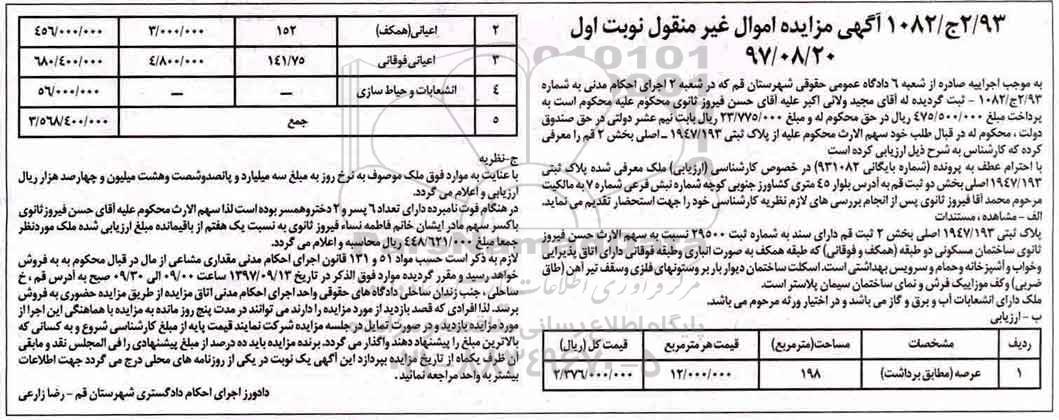 ۲/۹۳ج/۱۰۸۲ آگهی مزایده اموال غیر منقول نوبت اول
۹۷/۰۸/۲۰
به موجب اجراییه صادره از شعبه ۶ دادگاه عمومی حقوقی شهرستان قم که در شعبه ۲ اجرای احکام مدنی به شماره
۲/۹۳ج/۱۰۸۲ - ثبت گردیده له آقای مجید ولائی اکبر علیه آقای حسن فیروز ثانوی محکوم علیه محکوم است به
پرداخت مبلغ ۴۷۵/۵۰۰/۰۰۰ ریال در حق محکوم له و مبلغ ۲۳/۷۷۵/۰۰۰ ریال بابت نیم عشر دولتی در حق صندوق
دولت ، محکوم له در قبال طلب خود سهم الارث محکوم علیه از پلاک ثبتی ۱۹۴۷/۱۹۳ ـ اصلی بخش ۲ قم را معرفی
کرده که کارشناس به شرح ذیل ارزیابی کرده است
با احترام عطف به پرونده (شماره بایگانی ۹۳۱۰۸۳) در خصوص کارشناسی (ارزیابی) ملک معرفی شده پلاک ثبتی
۱۹۴۷/۱۹۳ اصلی بخش دو ثبت قم به آدرس بلوار ۴۵ متری کشاورز جنوبی کوچه شماره نبش فرعی شماره ۷ به مالکیت
مرحوم محمد آقا فیروز ثانوی پس از انجام بررسی های لازم نظریه کارشناسی خود را جهت استحضار تقدیم می نماید.
الف - مشاهده ، مستندات
پلاک ثبتی ۱۹۴۷/۱۹۳ اصلی بخش ۲ ثبت قم دارای سند به شماره ثبت ۲۹۵۰۰ نسبت به سهم الارث حسن فیروز
ثانوی ساختمان مسکونی دو طبقه (همکف و فوقانی) که طبقه همکف به صورت انباری وطبقه فوقانی دارای اتاق پذیرایی
وخواب و آشپزخانه و حمام و سرویس بهداشتی است. اسکلت ساختمان دیوار بار بر وستونهای فلزی وسقف تیر آهن (طاق
ضربی) وکف موزاییک فرش و نمای ساختمان سیمان پلاستر است.
ملک دارای انشعابات آب و برق و گاز می باشد و در اختیار ورثه مرحوم می باشد.
ب - ارزیابی
ردیف مشخصات مساحت(مترمربع) قیمت هر مترمربع قیمت کل (ریال)
۱ عرصه (مطابق برداشت) ۱۹۸ ۱۲/۰۰۰/۰۰۰ ۲/۳۷۶/۰۰۰/۰۰۰
۲ اعیانی(همکف) ۱۵۲ ۳/۰۰۰/۰۰۰ ۴۵۶/۰۰۰/۰۰۰
۳ اعیانی فوقانی ۱۴۱/۷۵ ۴/۸۰۰/۰۰۰ ۶۸۰/۴۰۰/۰۰۰
۴ انشعابات و حیاط سازی — — ۵۶/۰۰۰/۰۰۰
۵ جمع ۳/۵۶۸/۴۰۰/۰۰۰
ج-نظریه
با عنایت به موارد فوق ملک موصوف به نرخ روز به مبلغ سه میلیارد و پانصدوشصت وهشت میلیون و چهارصد هزار ریال
ارزیابی و اعلام می گردد.
در هنگام فوت نامبرده دارای تعداد ۶ پسر و ۲ دختروهمسر بوده است لذا سهم الارث محکوم علیه آقای حسن فیروز ثانوی
باکسر سهم مادر ایشان خانم فاطمه نساء فیروز ثانوی به نسبت یک هفتم از باقیمانده مبلغ ارزیابی شده ملک موردنظر
جمعا مبلغ ۴۴۸/۶۲۱/۰۰۰ ریال محاسبه و اعلام می گردد.
لازم به ذکر است حسب مواد ۵۱ و ۱۳۱ قانون اجرای احکام مدنی مقداری مشاعی از مال در قبال محکوم به به فروش
خواهد رسید و مقرر گردیده موارد فوق الذکر در تاریخ ۱۳۹۷/۰۹/۱۳ ساعت ۰۹/۰۰ الی ۰۹/۳۰ صبح به آدرس قم ، خ
ساحلی ، جنب زندان ساحلی دادگاه های حقوقی واحد اجرای احکام مدنی اتاق مزایده از طریق مزایده حضوری به فروش
برسد. لذا افرادی که قصد بازدید از مورد مزایده را دارند می توانند در مدت پنج روز مانده به مزایده با هماهنگی این اجرا از
مورد مزایده بازدید و در صورت تمایل در جلسه مزایده شرکت نمایند قیمت پایه از مبلغ کارشناسی شروع و به کسانی که
بالاترین مبلغ را پیشنهاد دهند واگذار می گردد. برنده مزایده باید ده درصد از مبلغ پیشنهادی را فی المجلس نقد و مابقی
آن ظرف یکماه از تاریخ مزایده بپردازد این آگهی یک نوبت در یکی از روزنامه های محلی درج می گردد جهت اطلاعات
بیشتر به واحد مراجعه نمائید.
دادورز اجرای احکام دادگستری شهرستان قم - رضا زارعی